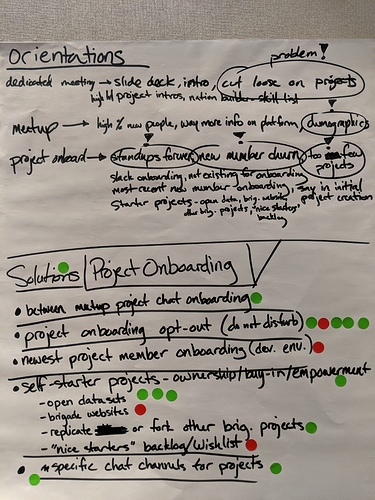 Orientations
problem!
dedicated meeting → slide deck, intro, cut loose on projects
high lvl project intros, nation builder skill list
meetup → high % new people, way more info on platform, demographics
project onboard → standups forever, new member churn, too few projects
slack onboarding, not existing for onboarding
most recent new member onboarding, say in initial project creation
starter projects - open data, brig. website,
other brig. projects, "nice starters"
backlog
Solutions | Project Onboarding
• between meetup project chat onboarding
• project onboarding opt-out (do not disturb)
• newest project member onboarding (dev. env.)
• self-starter projects - ownership/buy-in/empowerment
- open datasets
- brigade websites
- replicate or fork other brig. projects
- "nice starters" backlog/wishlist
• specific chat channels for projects